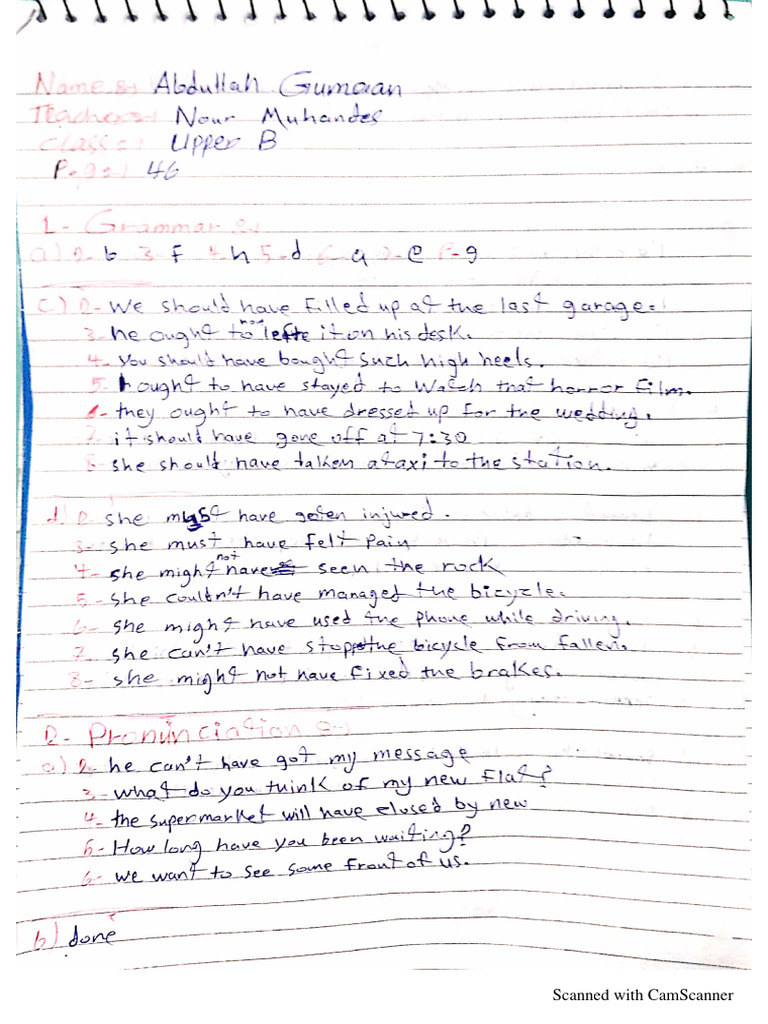 Name:- Abdullah Gumaan
Teacher:- Nour Muhandes
Class:- Upper B
P.g:- 46
1- Grammar:-
a) 2- b 3- f 4- h 5- d 6- a 7- e 8- g
c) 2- we should have filled up at the last garage.
3- he ought to not left it on his desk.
4- you should have bought such high heels.
5- I ought to have stayed to watch that horror film.
6- they ought to have dressed up for the wedding.
7- it should have gone off at 7:30
8- she should have taken a taxi to the station.
d) 2- she must have goten injured.
3- she must have felt pain
4- she might not have seen the rock
5- she couldn't have managed the bicycle.
6- she might have used the phone while driving.
7- she can't have stopp the bicycle from fallen.
8- she might not have fixed the brakes.
2- Pronunciation:-
a) 2- he can't have got my message
3- what do you think of my new flat?
4- the supermarket will have closed by new
5- How long have you been waiting?
6- we want to see some front of us.
b) done
Scanned with CamScanner